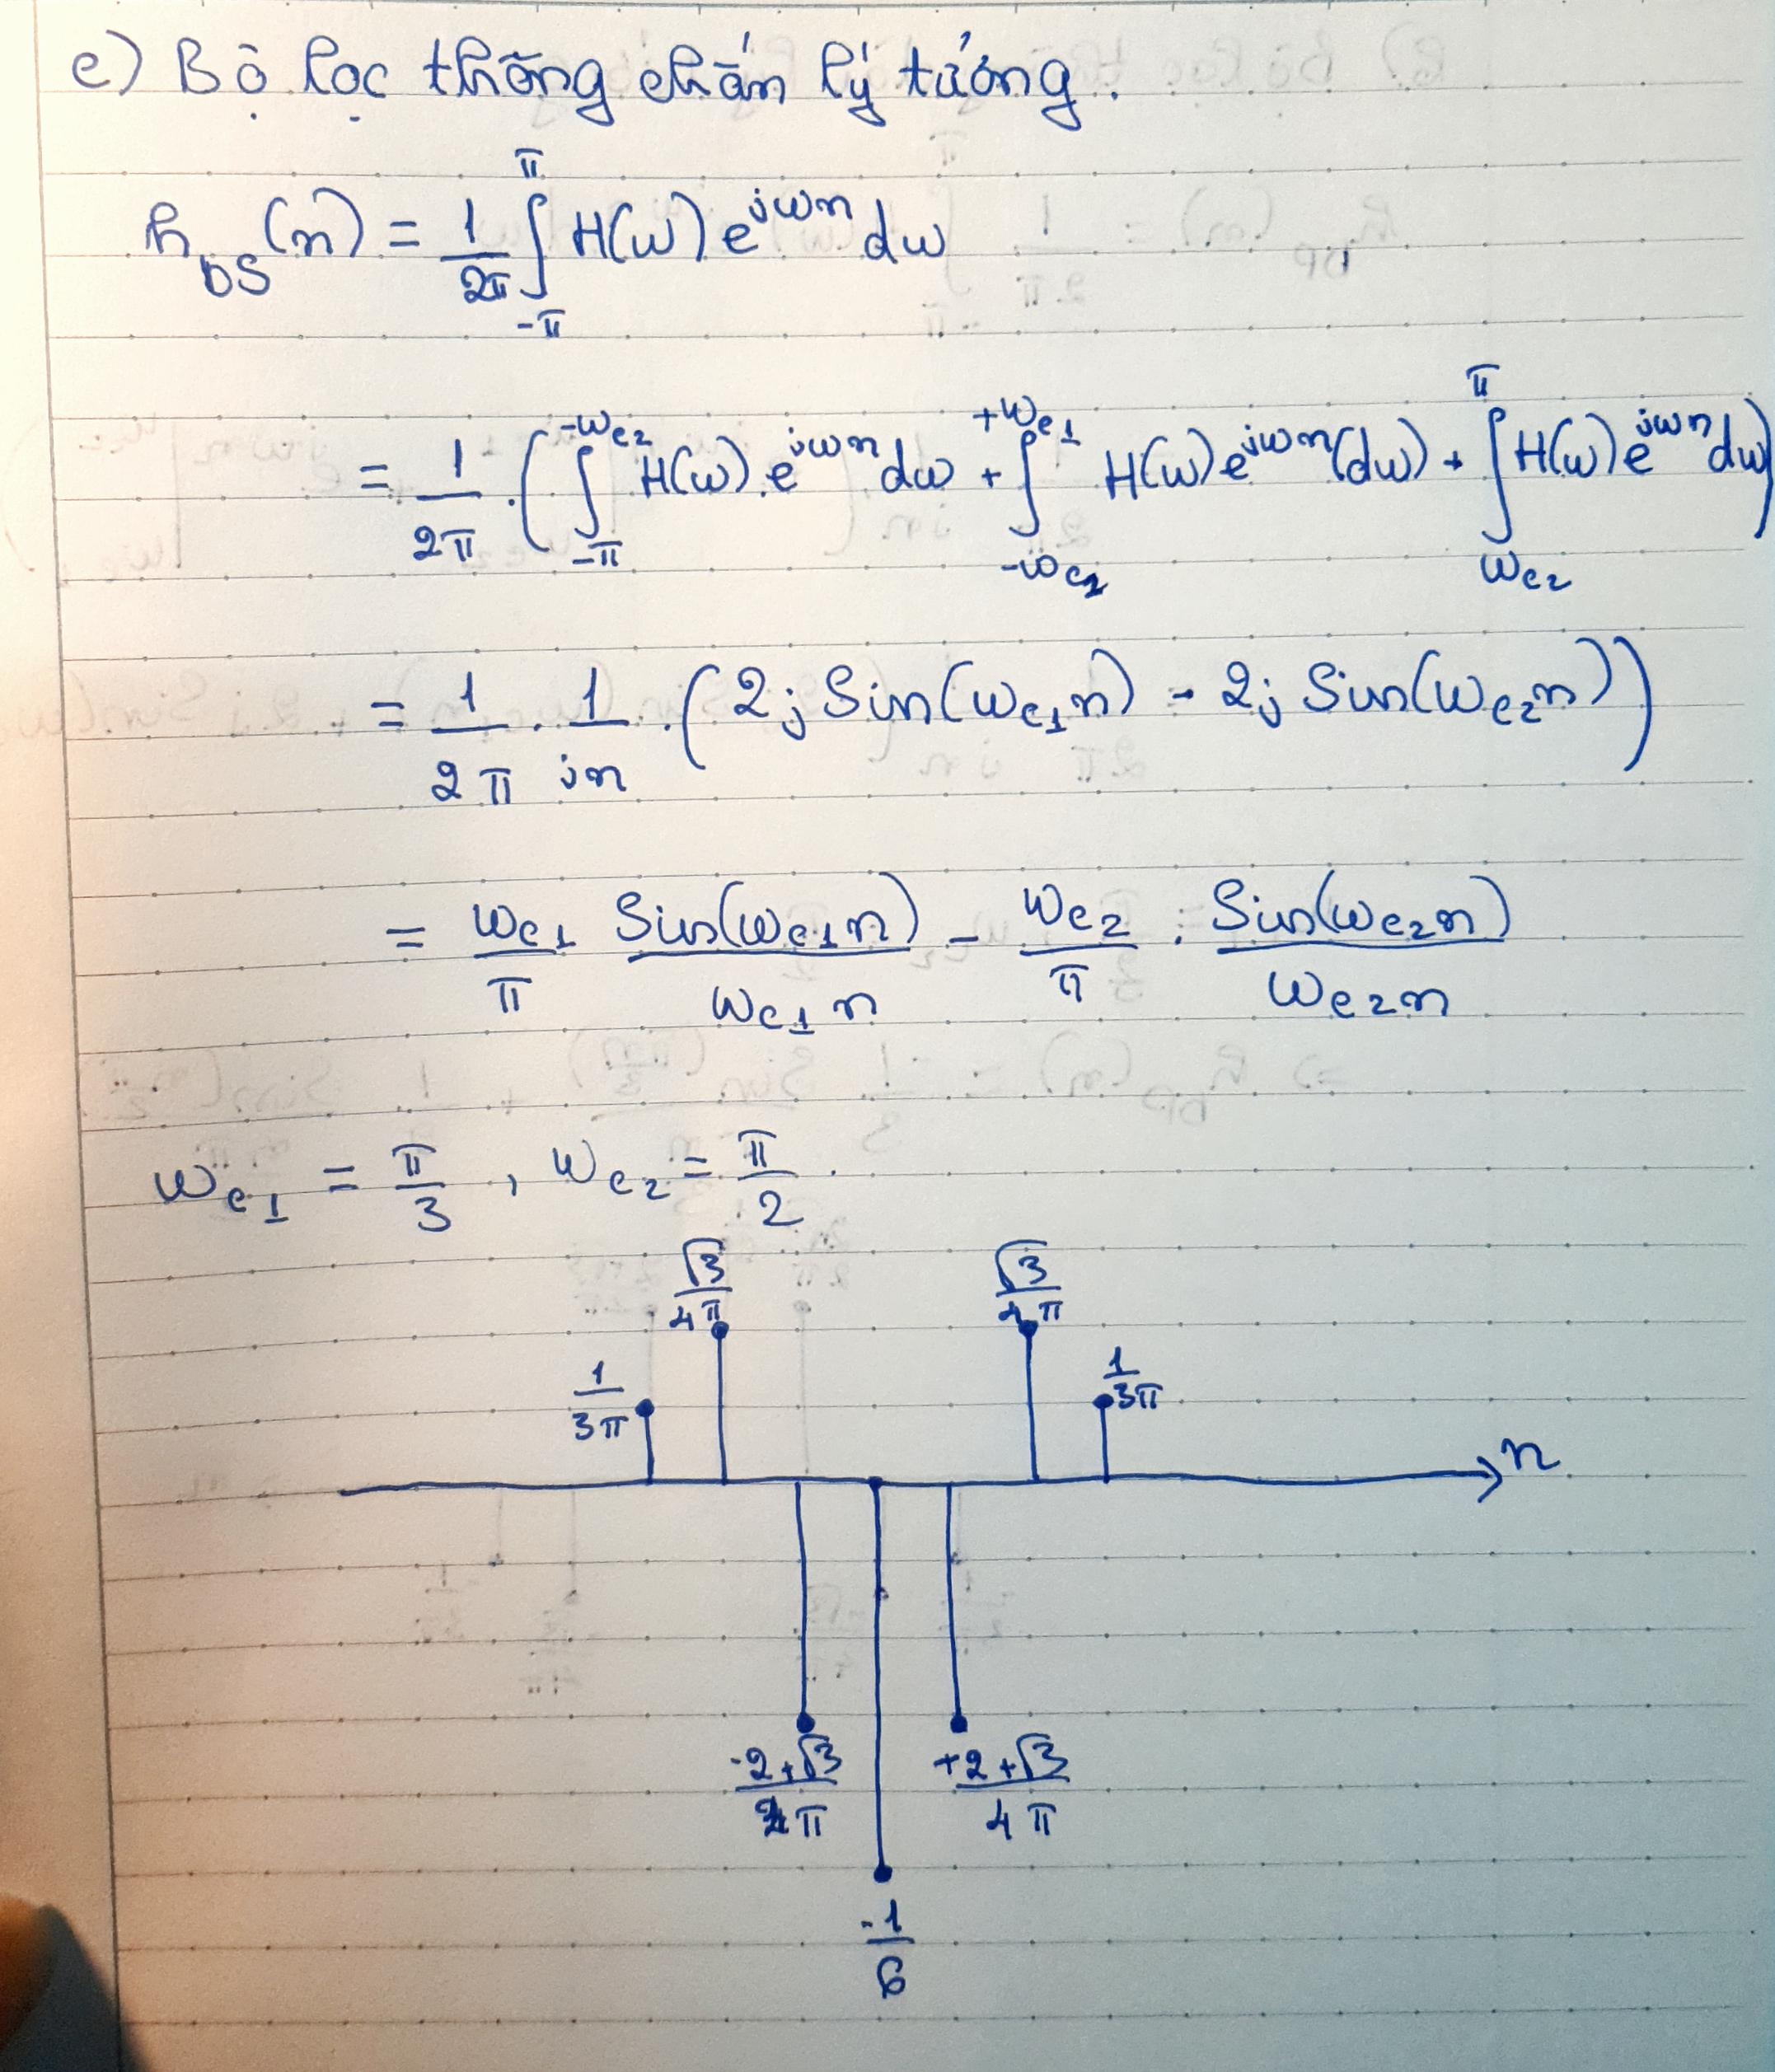 e) Bộ lọc thông chắn lý tưởng.
h_BS(n) = 1/2π ∫_{-π}^{π} H(ω) e^{jωn} dω
= 1/2π . ( ∫_{-π}^{-ωc2} H(ω) . e^{jωn} dω + ∫_{-ωc2}^{+ωc1} H(ω) e^{jωn} (dω) + ∫_{ωc2}^{π} H(ω) e^{jωn} dω )
= 1/2π . 1/jn . ( 2j Sin(ωc1n) - 2j Sin(ωc2n) )
= ωc1/π Sin(ωc1n)/ωc1n - ωc2/π . Sin(ωc2n)/ωc2n
ωc1 = π/3 , ωc2 = π/2 .
√3/4π √3/4π
1/3π 1/3π
n
-2+√3/4π +2+√3/4π
-1/6